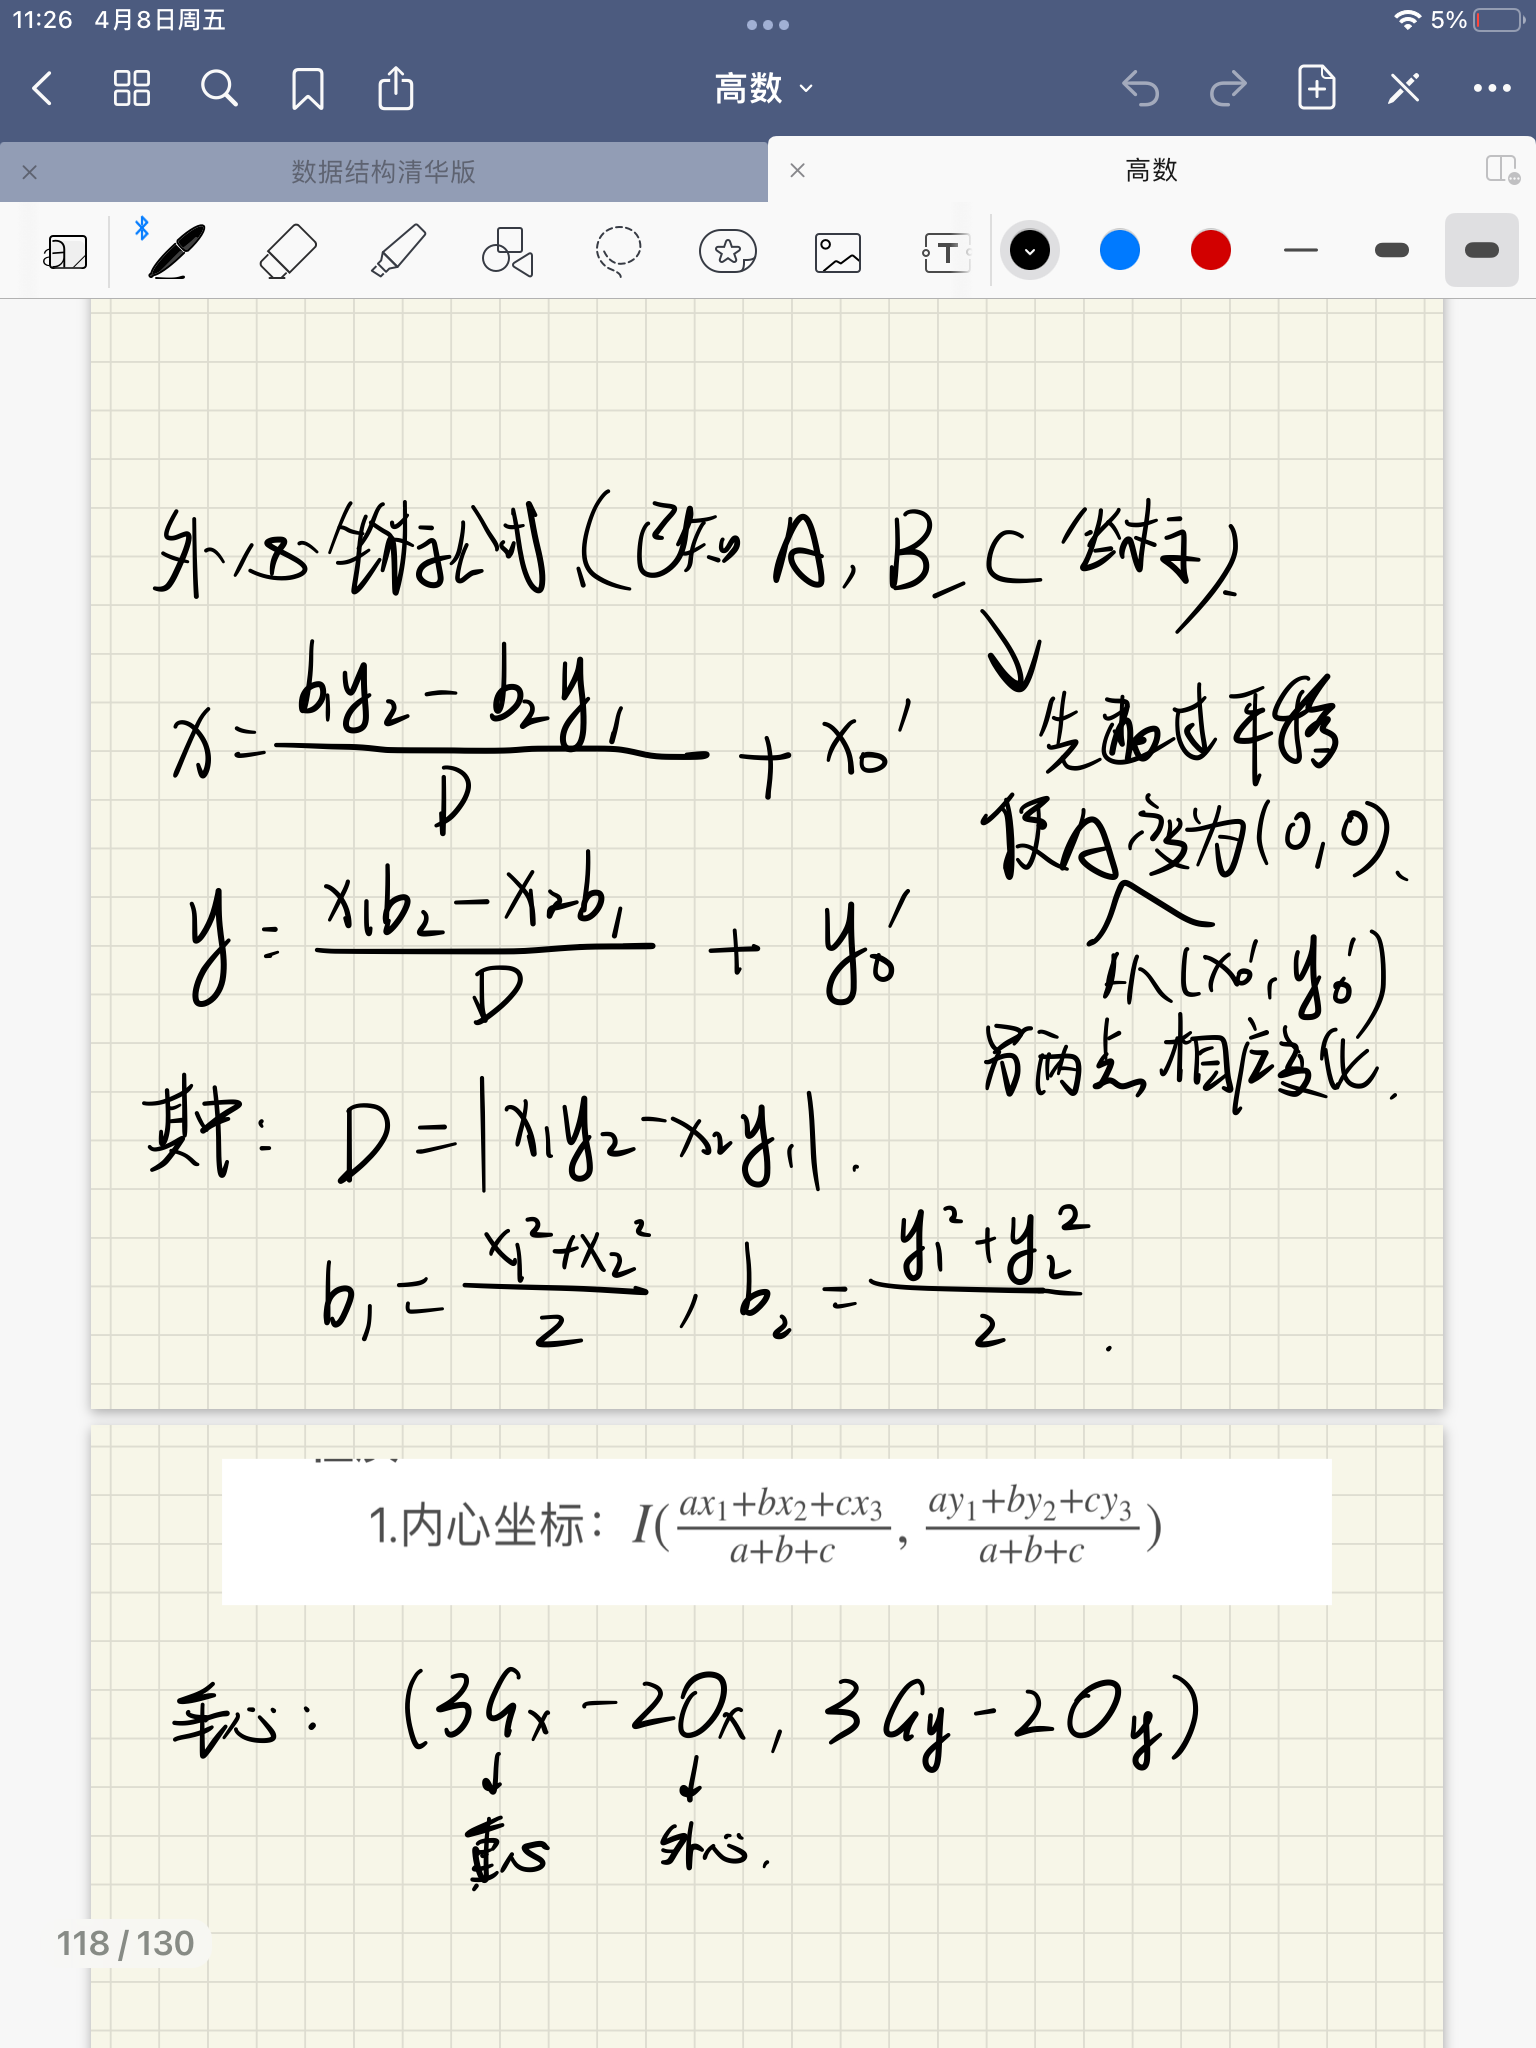 11:26 4月8日周五 5%
高数
数据结构清华版 高数
外心坐标公式(已知A,B,C坐标).
x = (b₁y₂ - b₂y₁)/D + x₀′
先通过平移
使A变为(0,0)、
y = (x₁b₂ - x₂b₁)/D + y₀′
从(x₀′, y₀′)
另两点相应变化.
其中: D = |x₁y₂ - x₂y₁|.
b₁ = (x₁²+x₂²)/2 , b₂ = (y₁²+y₂²)/2 .
1.内心坐标：I((ax₁+bx₂+cx₃)/(a+b+c), (ay₁+by₂+cy₃)/(a+b+c))
垂心: (3Gx - 2Ox, 3Gy - 2Oy)
重心 外心.
118 / 130